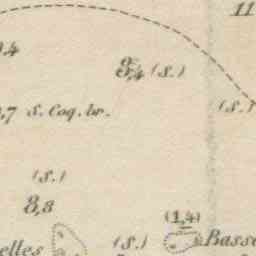 11
,4
8,4 (s.)
,7 S. Coq. br.
(s.)
(s.)
8,8
(1,4)
elles
(s.)
Basse